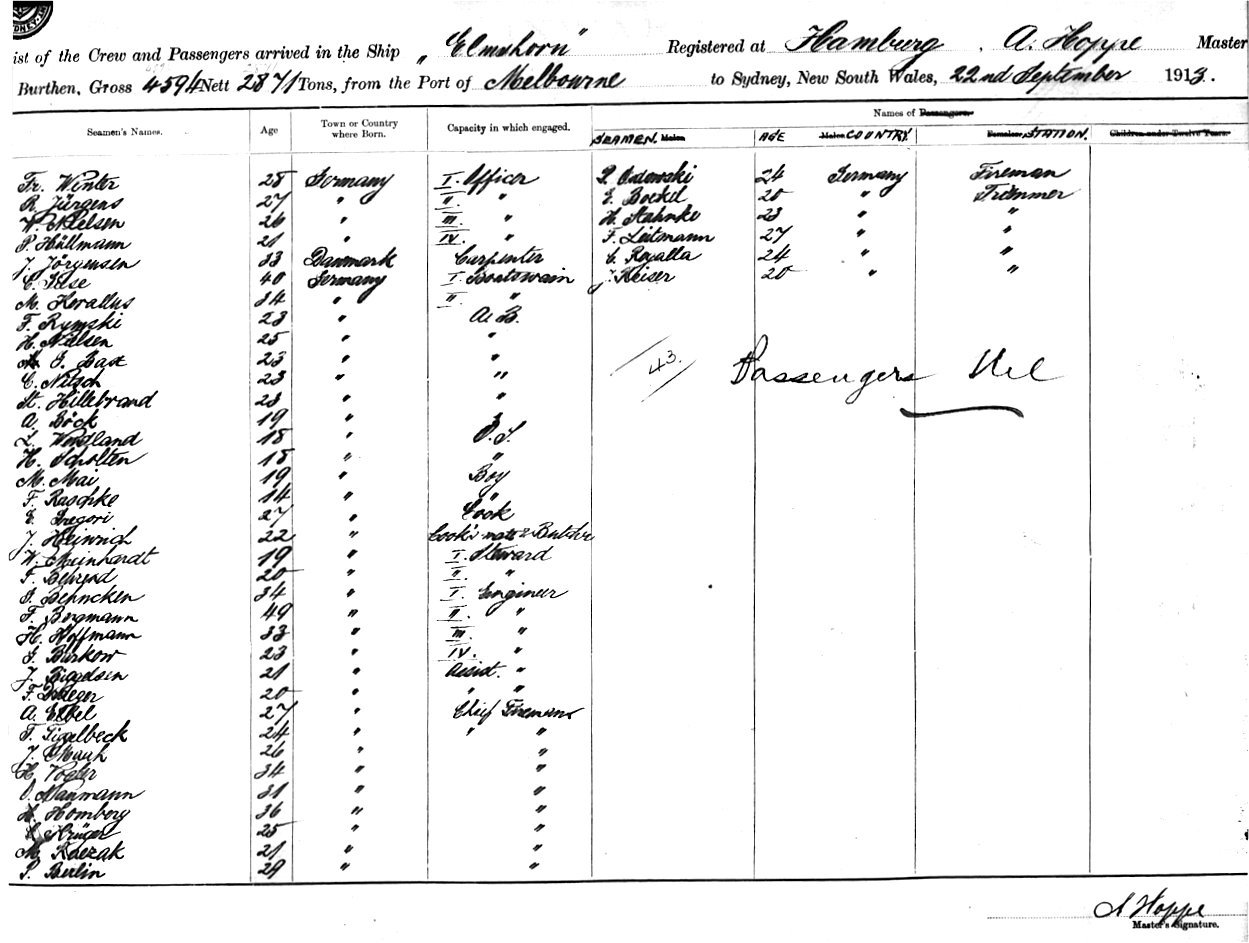 SYDNEY
ist of the Crew and Passengers arrived in the Ship „Elmshorn" Registered at Hamburg, A. Hoppe Master
Burthen, Gross 4594 Nett 2871 Tons, from the Port of Melbourne to Sydney, New South Wales, 22nd September 1913.
Seamen's Names. Age Town or Country where Born. Capacity in which engaged. Names of Passengers.
SEAMEN. Males AGE Males COUNTRY. Females STATION. Children under Twelve Years.
Fr. Winter 28 Germany I. Officer P. 24 Germany Fireman
R. Jürgens 27 " II. " E. Boekel 20 " Trimmer
W. Nielsen 26 " III. " H. Stahnke 23 " "
P. Hüllmann 21 " IV. " F. Leitmann 27 " "
J. Jörgensen 33 Danmark Carpenter C. Rogalla 24 " "
C. 40 Germany I. Boatswain J. Keiser 20 " "
M. Korallus 34 " II. "
F. Rymski 23 " A.B.
H. Nielsen 25 " "
G. Bast 23 " "
C. Nitsch 23 " "
St. Hillebrand 23 " "
A. Böck 19 " "
L. Wendland 18 " O.S.
H. Scholten 18 " "
M. Mai 19 " Boy
F. Raschke 14 " "
E. Gregori 27 " Cook
J. Heinrich 22 " Cook's mate & Butcher
W. Meinhardt 19 " I. Steward
F. Behrend 20 " II. "
J. Behncken 34 " I. Engineer
F. Bergmann 49 " II. "
H. Hoffmann 33 " III. "
G. Burkow 23 " IV. "
J. 21 " Assist. "
F. Draeger 20 " " "
A. Elbel 27 " Chief Fireman
F. Sigelbeck 24 " " "
J. Mauh 26 " "
H. Vogler 34 " "
O. Naumann 31 " "
H. Homberg 36 " "
Krüger 25 " "
M. Kaczak 21 " "
P. Berlin 29 " "
43.
Passengers Nil
A Hoppe
Master's Signature.